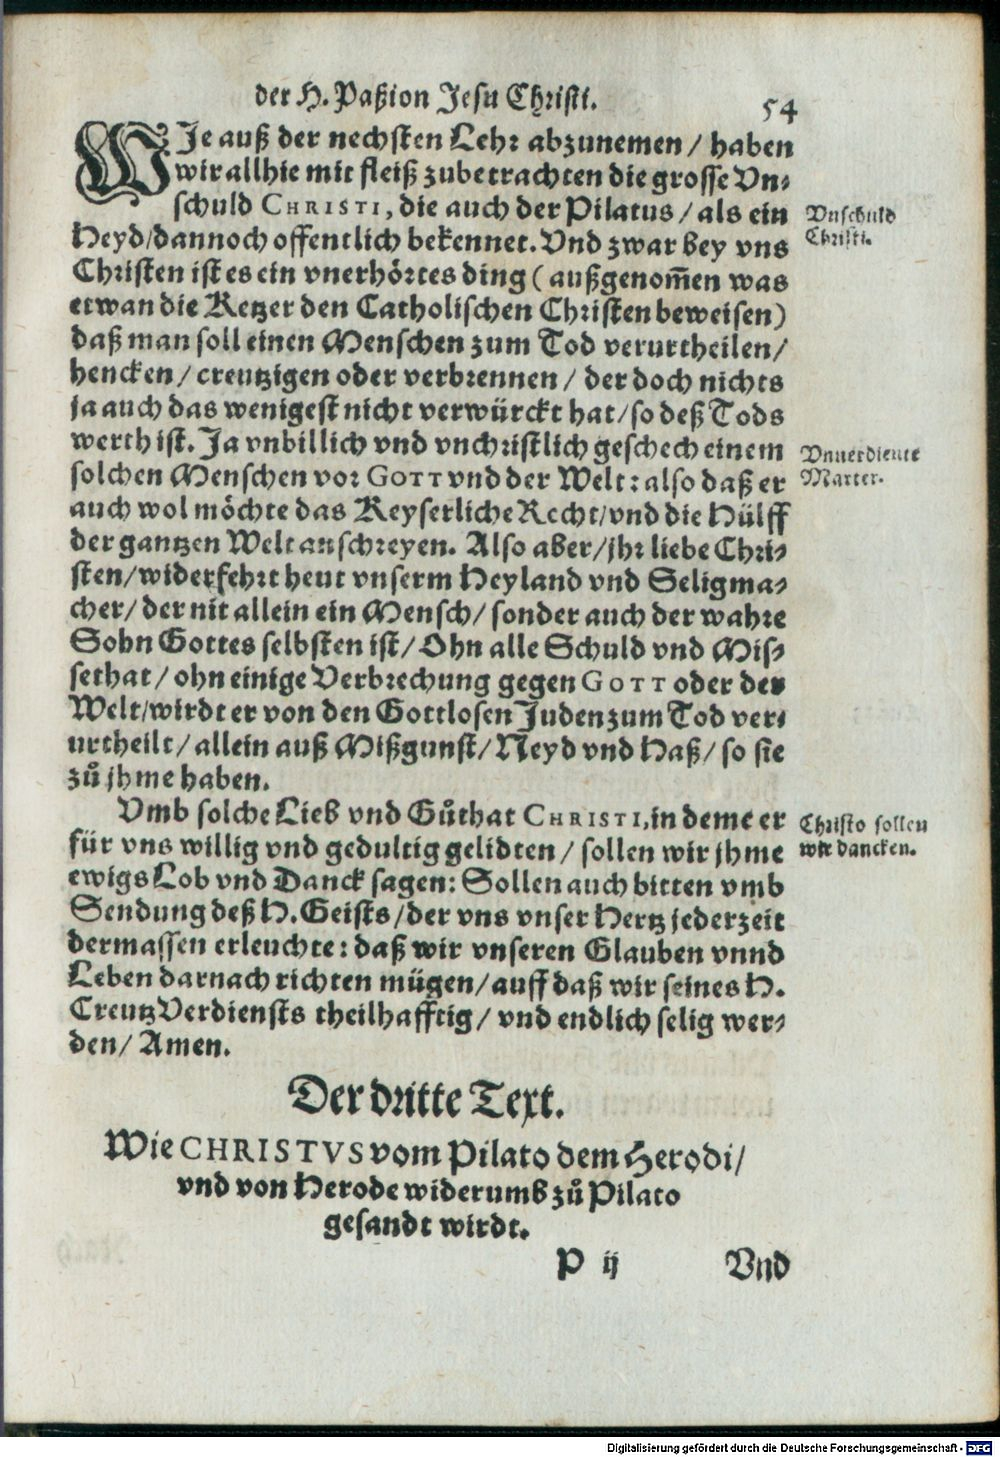 der H. Paßion Jesu Christi.
54
WJe auß der nechsten Lehr abzunemen / haben
wir allhie mit fleiß zubetrachten die grosse Vn-
schuld CHRISTI, die auch der Pilatus / als ein
Vnschuld
Christi.
Heyd/dannoch offentlich bekennet. Vnd zwar bey vns
Christen ist es ein vnerhörtes ding (außgenom̃en was
etwan die Ketzer den Catholischen Christen beweisen)
daß man soll einen Menschen zum Tod verurtheilen/
hencken / creutzigen oder verbrennen / der doch nichts
ja auch das wenigest nicht verwürckt hat/so deß Tods
werth ist. Ja vnbillich vnd vnchristlich geschech einem
Vnuerdiente
Marter.
solchen Menschen vor GOTT vnd der Welt: also daß er
auch wol möchte das Keyserliche Recht/vnd die Hülff
der gantzen Welt anschreyen. Also aber/jhr liebe Chri-
sten/widerfehrt heut vnserm Heyland vnd Seligma-
cher/ der nit allein ein Mensch/ sonder auch der wahre
Sohn Gottes selbsten ist/ Ohn alle Schuld vnd Mis-
sethat / ohn einige Verbrechung gegen GOTT oder der
Welt/wirdt er von den Gottlosen Juden zum Tod ver-
urtheilt/ allein auß Mißgunst/ Neyd vnd Haß/ so sie
zů jhme haben.
Vmb solche Lieb vnd Gůthat CHRISTI, in deme er
Christo sollen
wir dancken.
für vns willig vnd gedultig gelidten / sollen wir jhme
ewigs Lob vnd Danck sagen: Sollen auch bitten vmb
Sendung deß H. Geists/der vns vnser Hertz jederzeit
dermassen erleuchte: daß wir vnseren Glauben vnnd
Leben darnach richten mügen/ auff daß wir seines H.
Creutz Verdiensts theilhafftig/ vnd endlich selig wer-
den/ Amen.
Der dritte Text.
Wie CHRISTVS vom Pilato dem Herodi/
vnd von Herode widerumb zů Pilato
gesandt wirdt.
P ij
Vnd
Digitalisierung gefördert durch die Deutsche Forschungsgemeinschaft - DFG